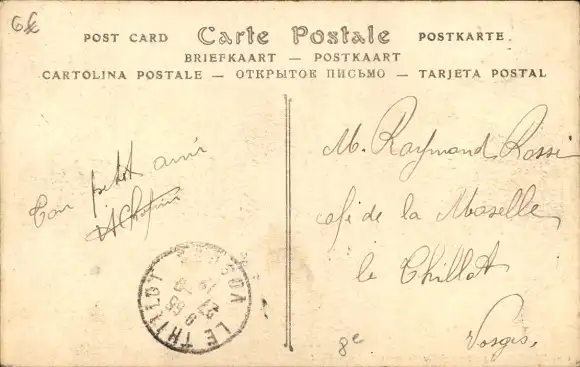 6f
POST CARD Carte Postale POSTKARTE
BRIEFKAART — POSTKAART
CARTOLINA POSTALE — ОТКРЫТОЕ ПИСЬМО — TARJETA POSTAL
Ton petit ami
M. Raymond Rossi
café de la Moselle
le Thillot
Vosges.
LE THILLOT
VOSGES
8e